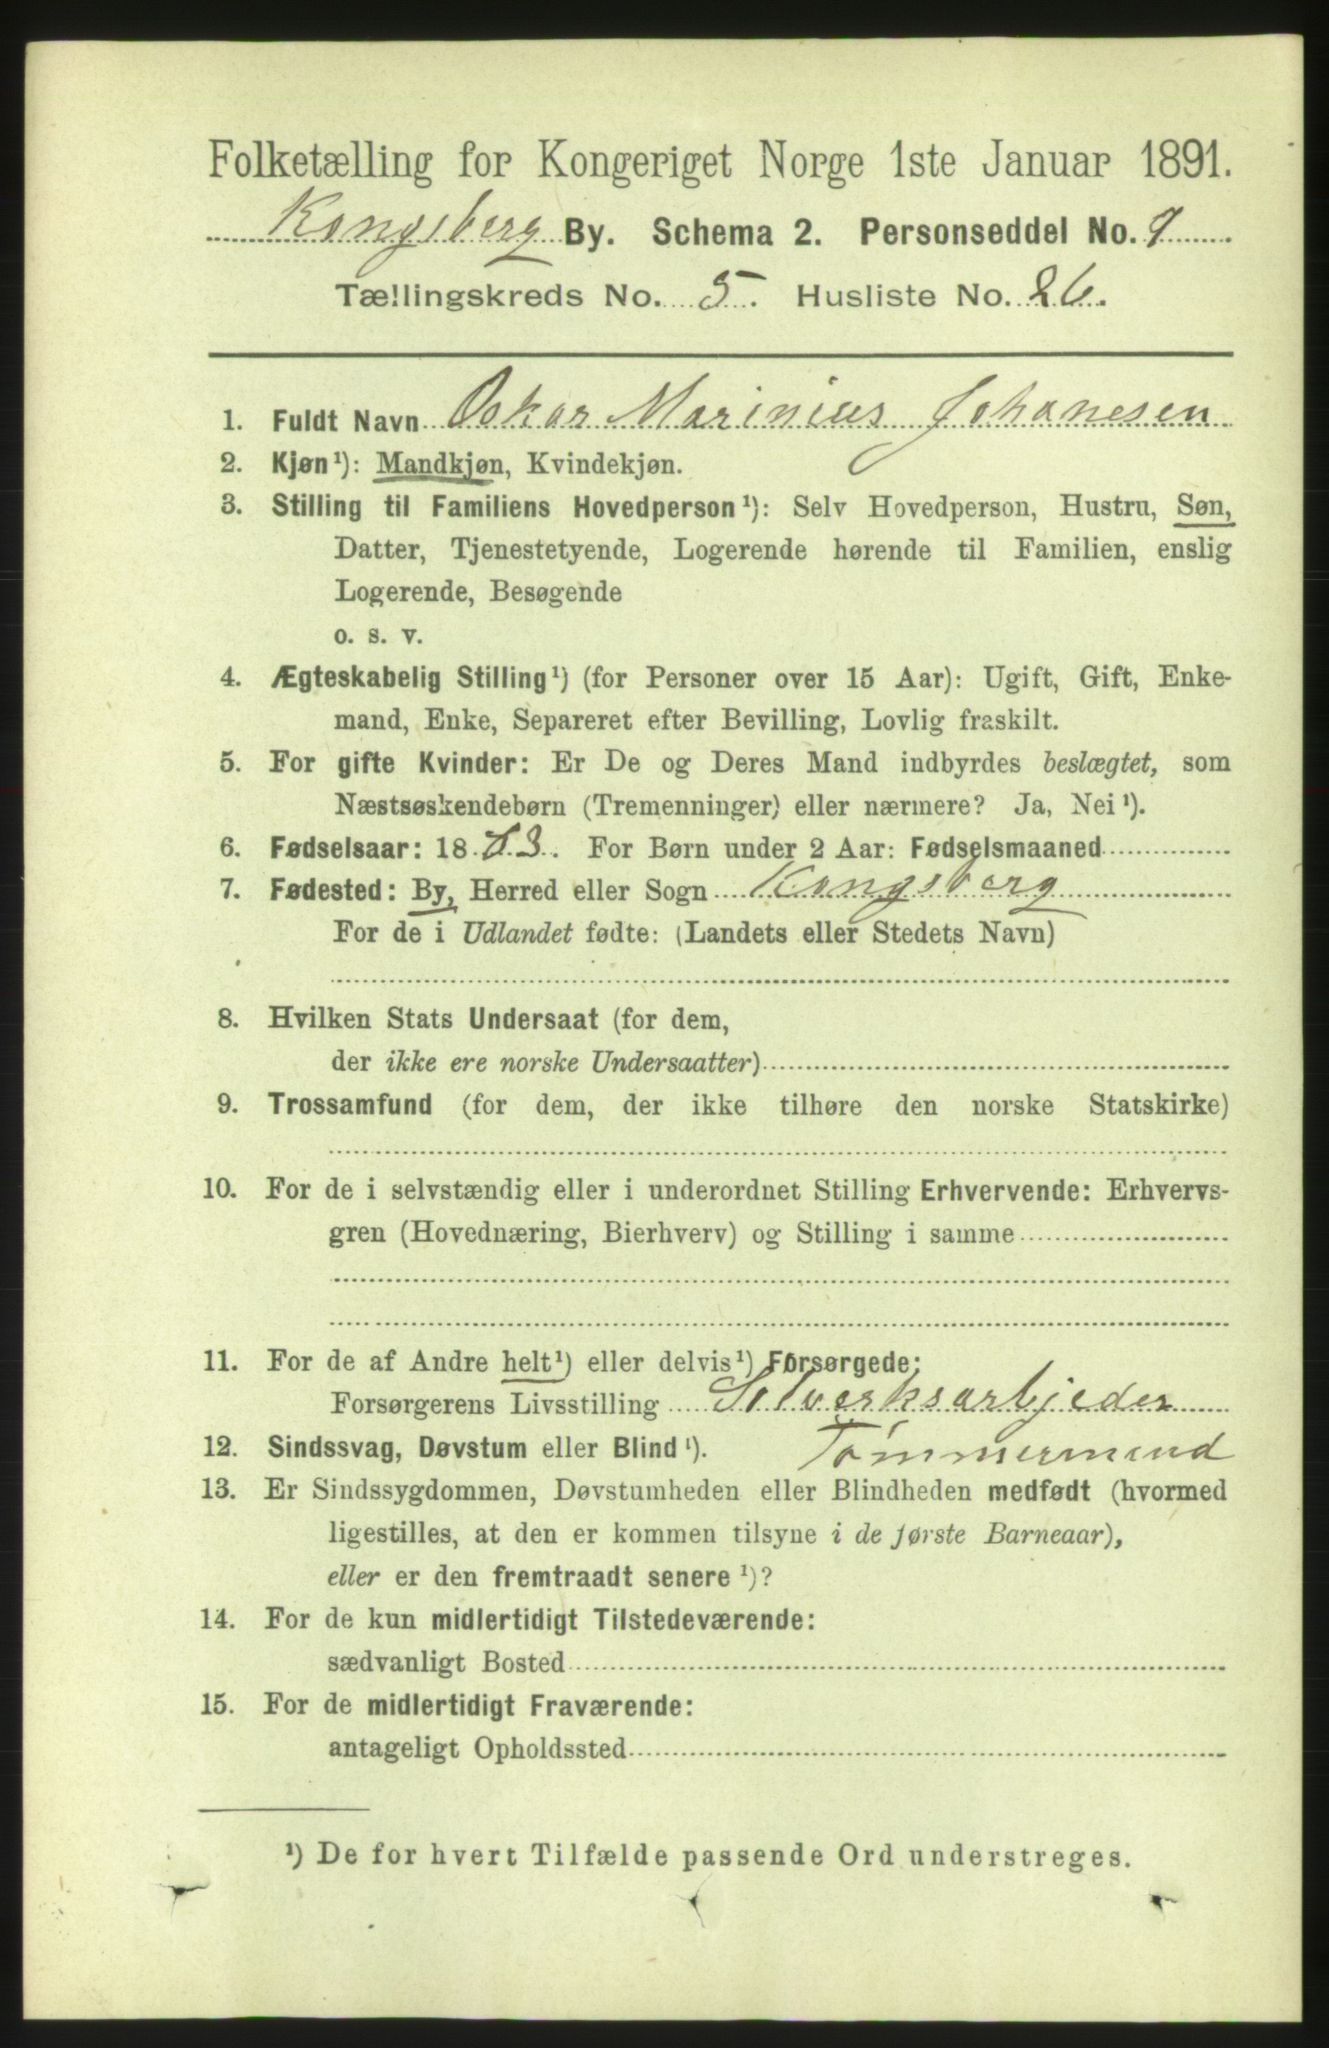 Folketælling for Kongeriget Norge 1ste Januar 1891.
Kongsberg By. Schema 2. Personseddel No. 9
Tællingskreds No. 5. Husliste No. 26.
1. Fuldt Navn Oskar Marinius Johanesen
2. Kjøn¹): Mandkjøn, Kvindekjøn.
3. Stilling til Familiens Hovedperson¹): Selv Hovedperson, Hustru, Søn,
Datter, Tjenestetyende, Logerende hørende til Familien, enslig
Logerende, Besøgende
o. s. v.
4. Ægteskabelig Stilling¹) (for Personer over 15 Aar): Ugift, Gift, Enke-
mand, Enke, Separeret efter Bevilling, Lovlig fraskilt.
5. For gifte Kvinder: Er De og Deres Mand indbyrdes beslægtet, som
Næstsøskendebørn (Tremenninger) eller nærmere? Ja, Nei¹).
6. Fødselsaar: 1883. For Børn under 2 Aar: Fødselsmaaned
7. Fødested: By, Herred eller Sogn Kongsberg
For de i Udlandet fødte: (Landets eller Stedets Navn)
8. Hvilken Stats Undersaat (for dem,
der ikke ere norske Undersaatter)
9. Trossamfund (for dem, der ikke tilhøre den norske Statskirke)
10. For de i selvstændig eller i underordnet Stilling Erhvervende: Erhvervs-
gren (Hovednæring, Bierhverv) og Stilling i samme
11. For de af Andre helt¹) eller delvis¹) Forsørgede:
Forsørgerens Livsstilling Solverksarbjeder
12. Sindssvag, Døvstum eller Blind¹). Tømmermand
13. Er Sindssygdommen, Døvstumheden eller Blindheden medfødt (hvormed
ligestilles, at den er kommen tilsyne i de første Barneaar),
eller er den fremtraadt senere¹)?
14. For de kun midlertidigt Tilstedeværende:
sædvanligt Bosted
15. For de midlertidigt Fraværende:
antageligt Opholdssted
¹) De for hvert Tilfælde passende Ord understreges.